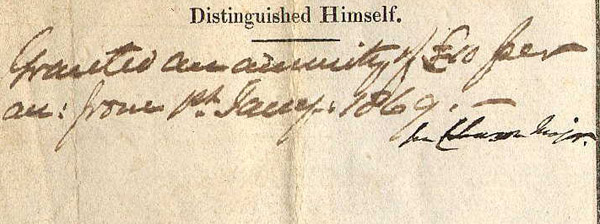 Distinguished Himself.
Granted an annuity of £10 per
an: from 1st Jany: 1869. —
Major.